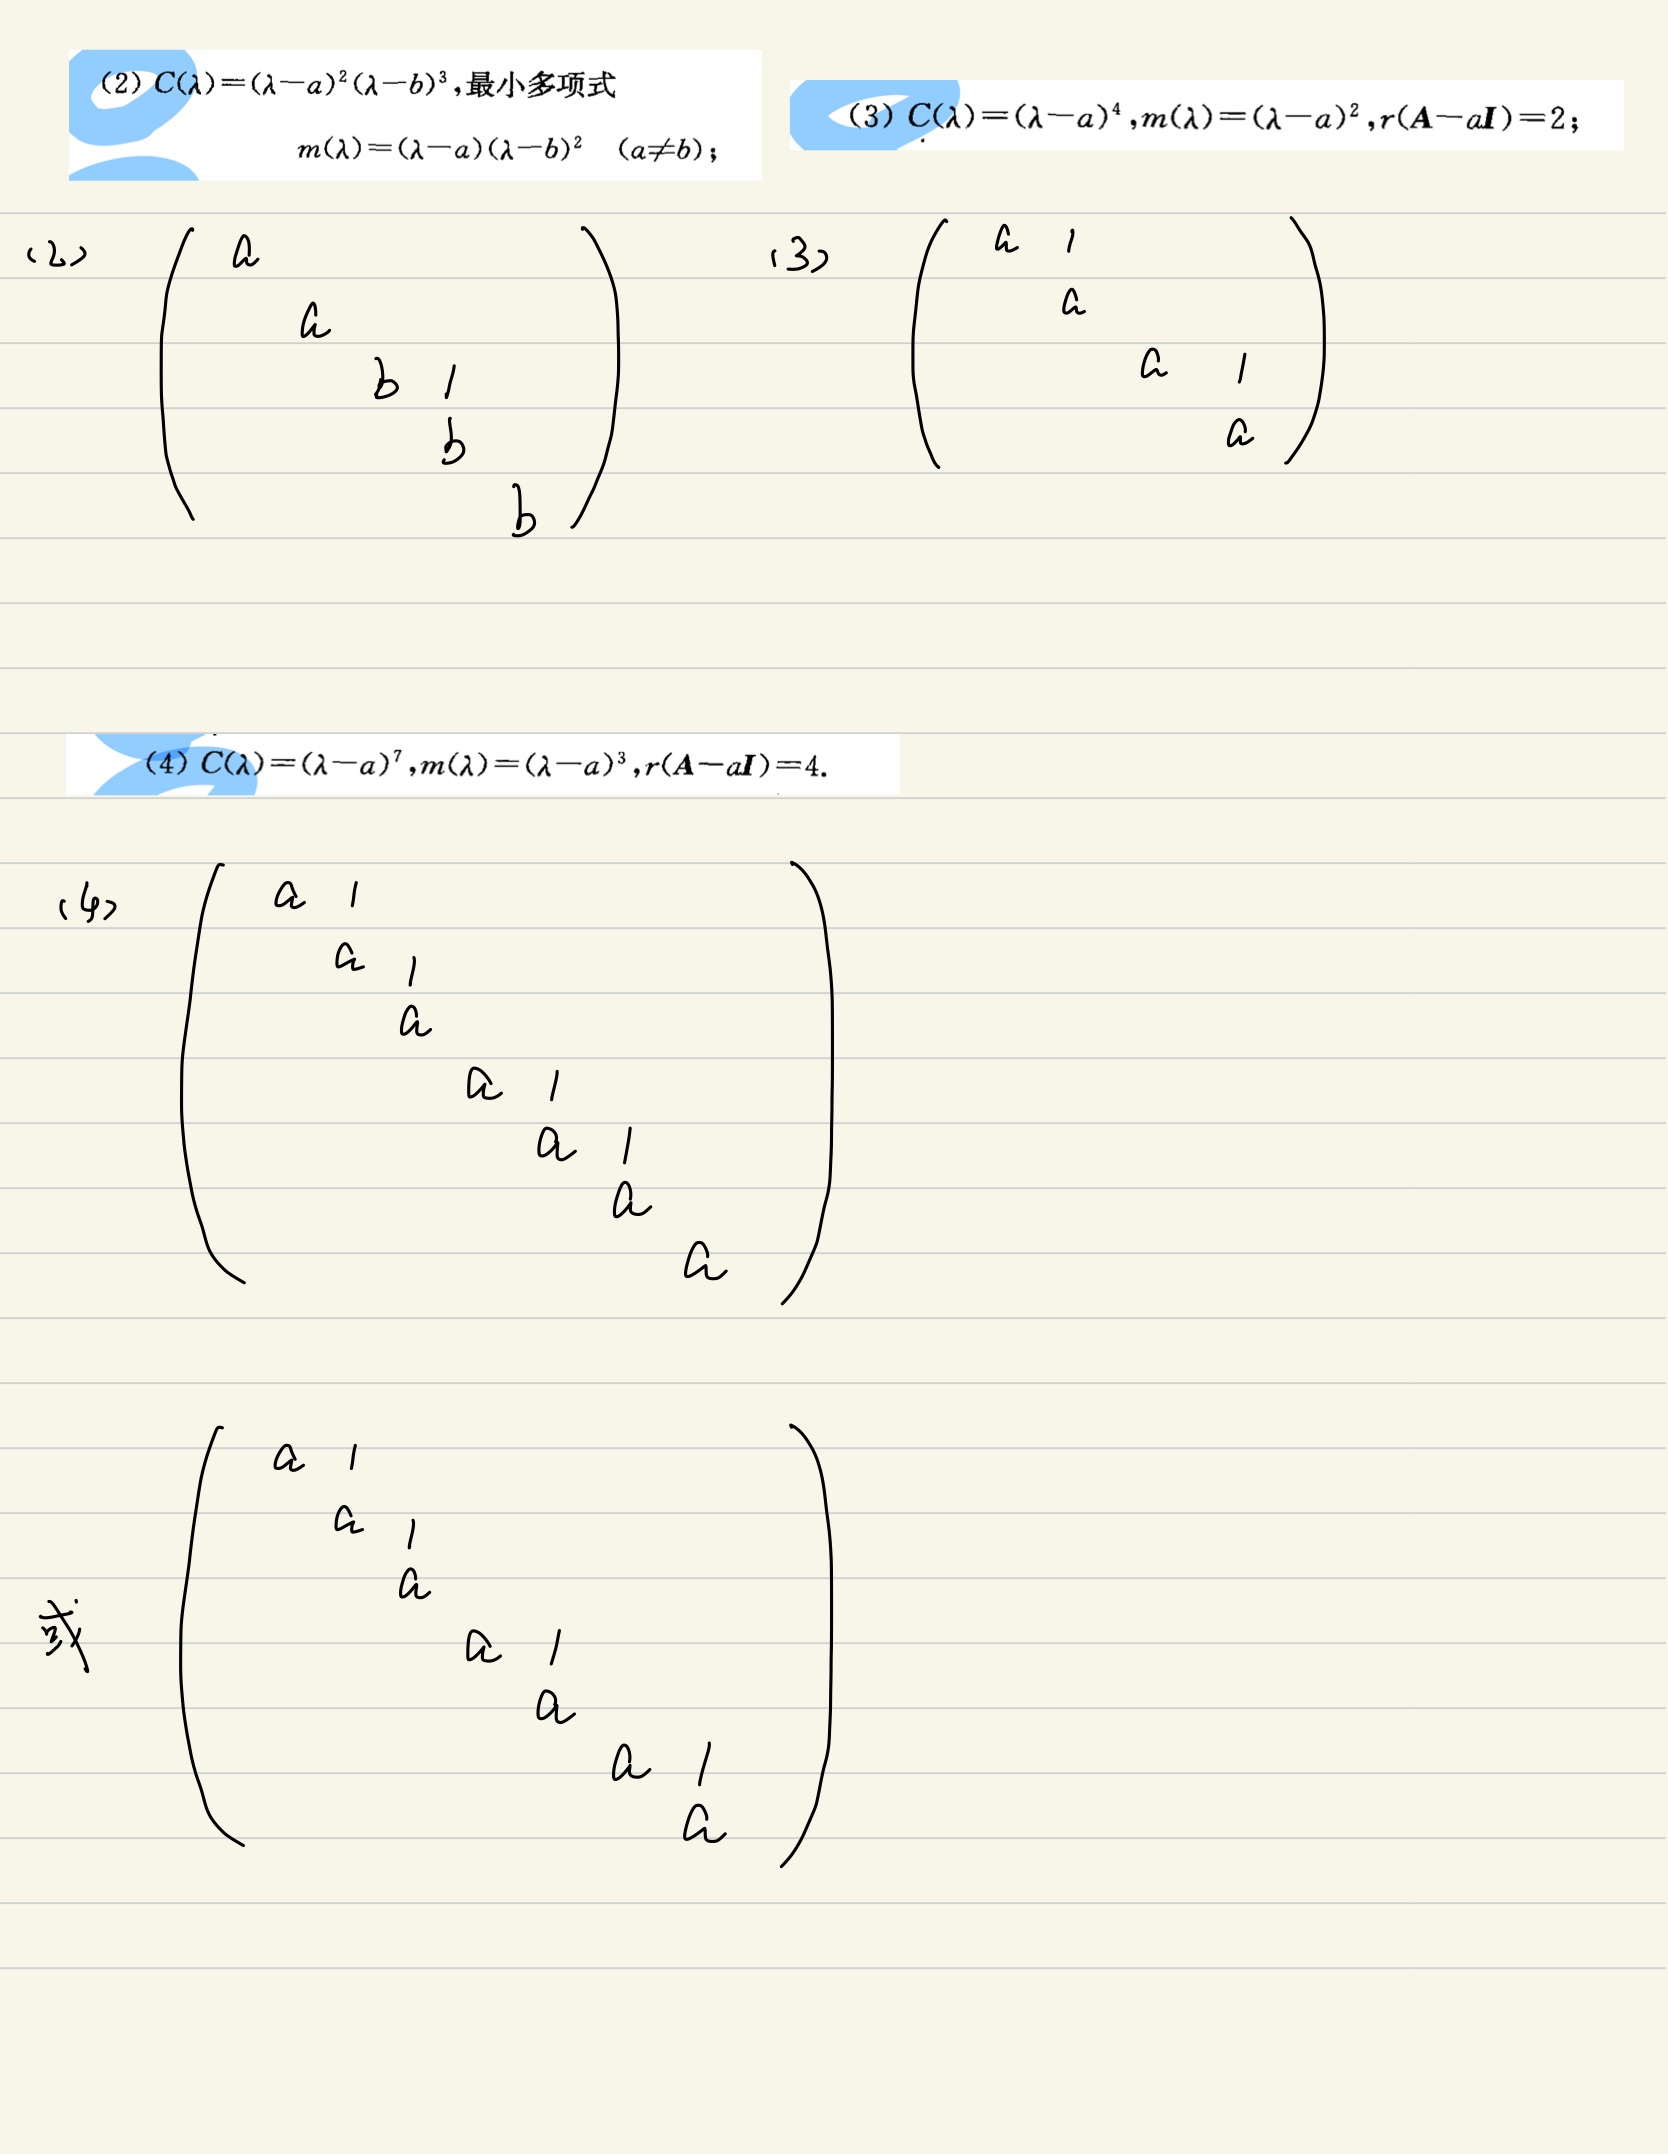 (2) C(λ)=(λ−a)²(λ−b)³,最小多项式
m(λ)=(λ−a)(λ−b)² (a≠b);
(3) C(λ)=(λ−a)⁴,m(λ)=(λ−a)²,r(A−aI)=2;
(2)
a
a
b 1
b
b
(3)
a 1
a
a 1
a
(4) C(λ)=(λ−a)⁷,m(λ)=(λ−a)³,r(A−aI)=4.
(4)
a 1
a 1
a
a 1
a 1
a
a
或
a 1
a 1
a
a 1
a
a 1
a